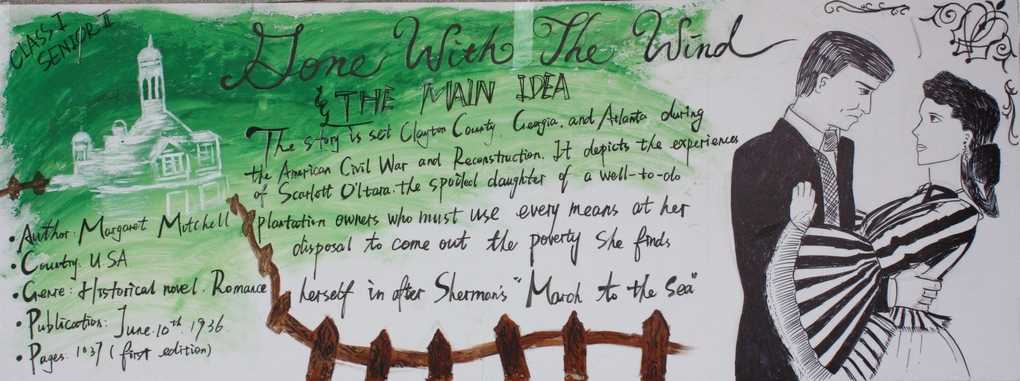 CLASS I
SENIOR II
Gone With The Wind
& THE MAIN IDEA
The story is set Clayton County, Georgia, and Atlanta during
the American Civil War and Reconstruction. It depicts the experiences
of Scarlott O'ltara. the spoiled daughter of a well-to-do
plantation owners who must use every means at her
disposal to come out the poverty She finds
herself in after Sherman's "March to the Sea"
• Author: Margaret Mitchell
• Country: USA
• Genre: Historical novel. Romance
• Publication: June. 10th, 1936.
• Pages: 1037 (first edition)